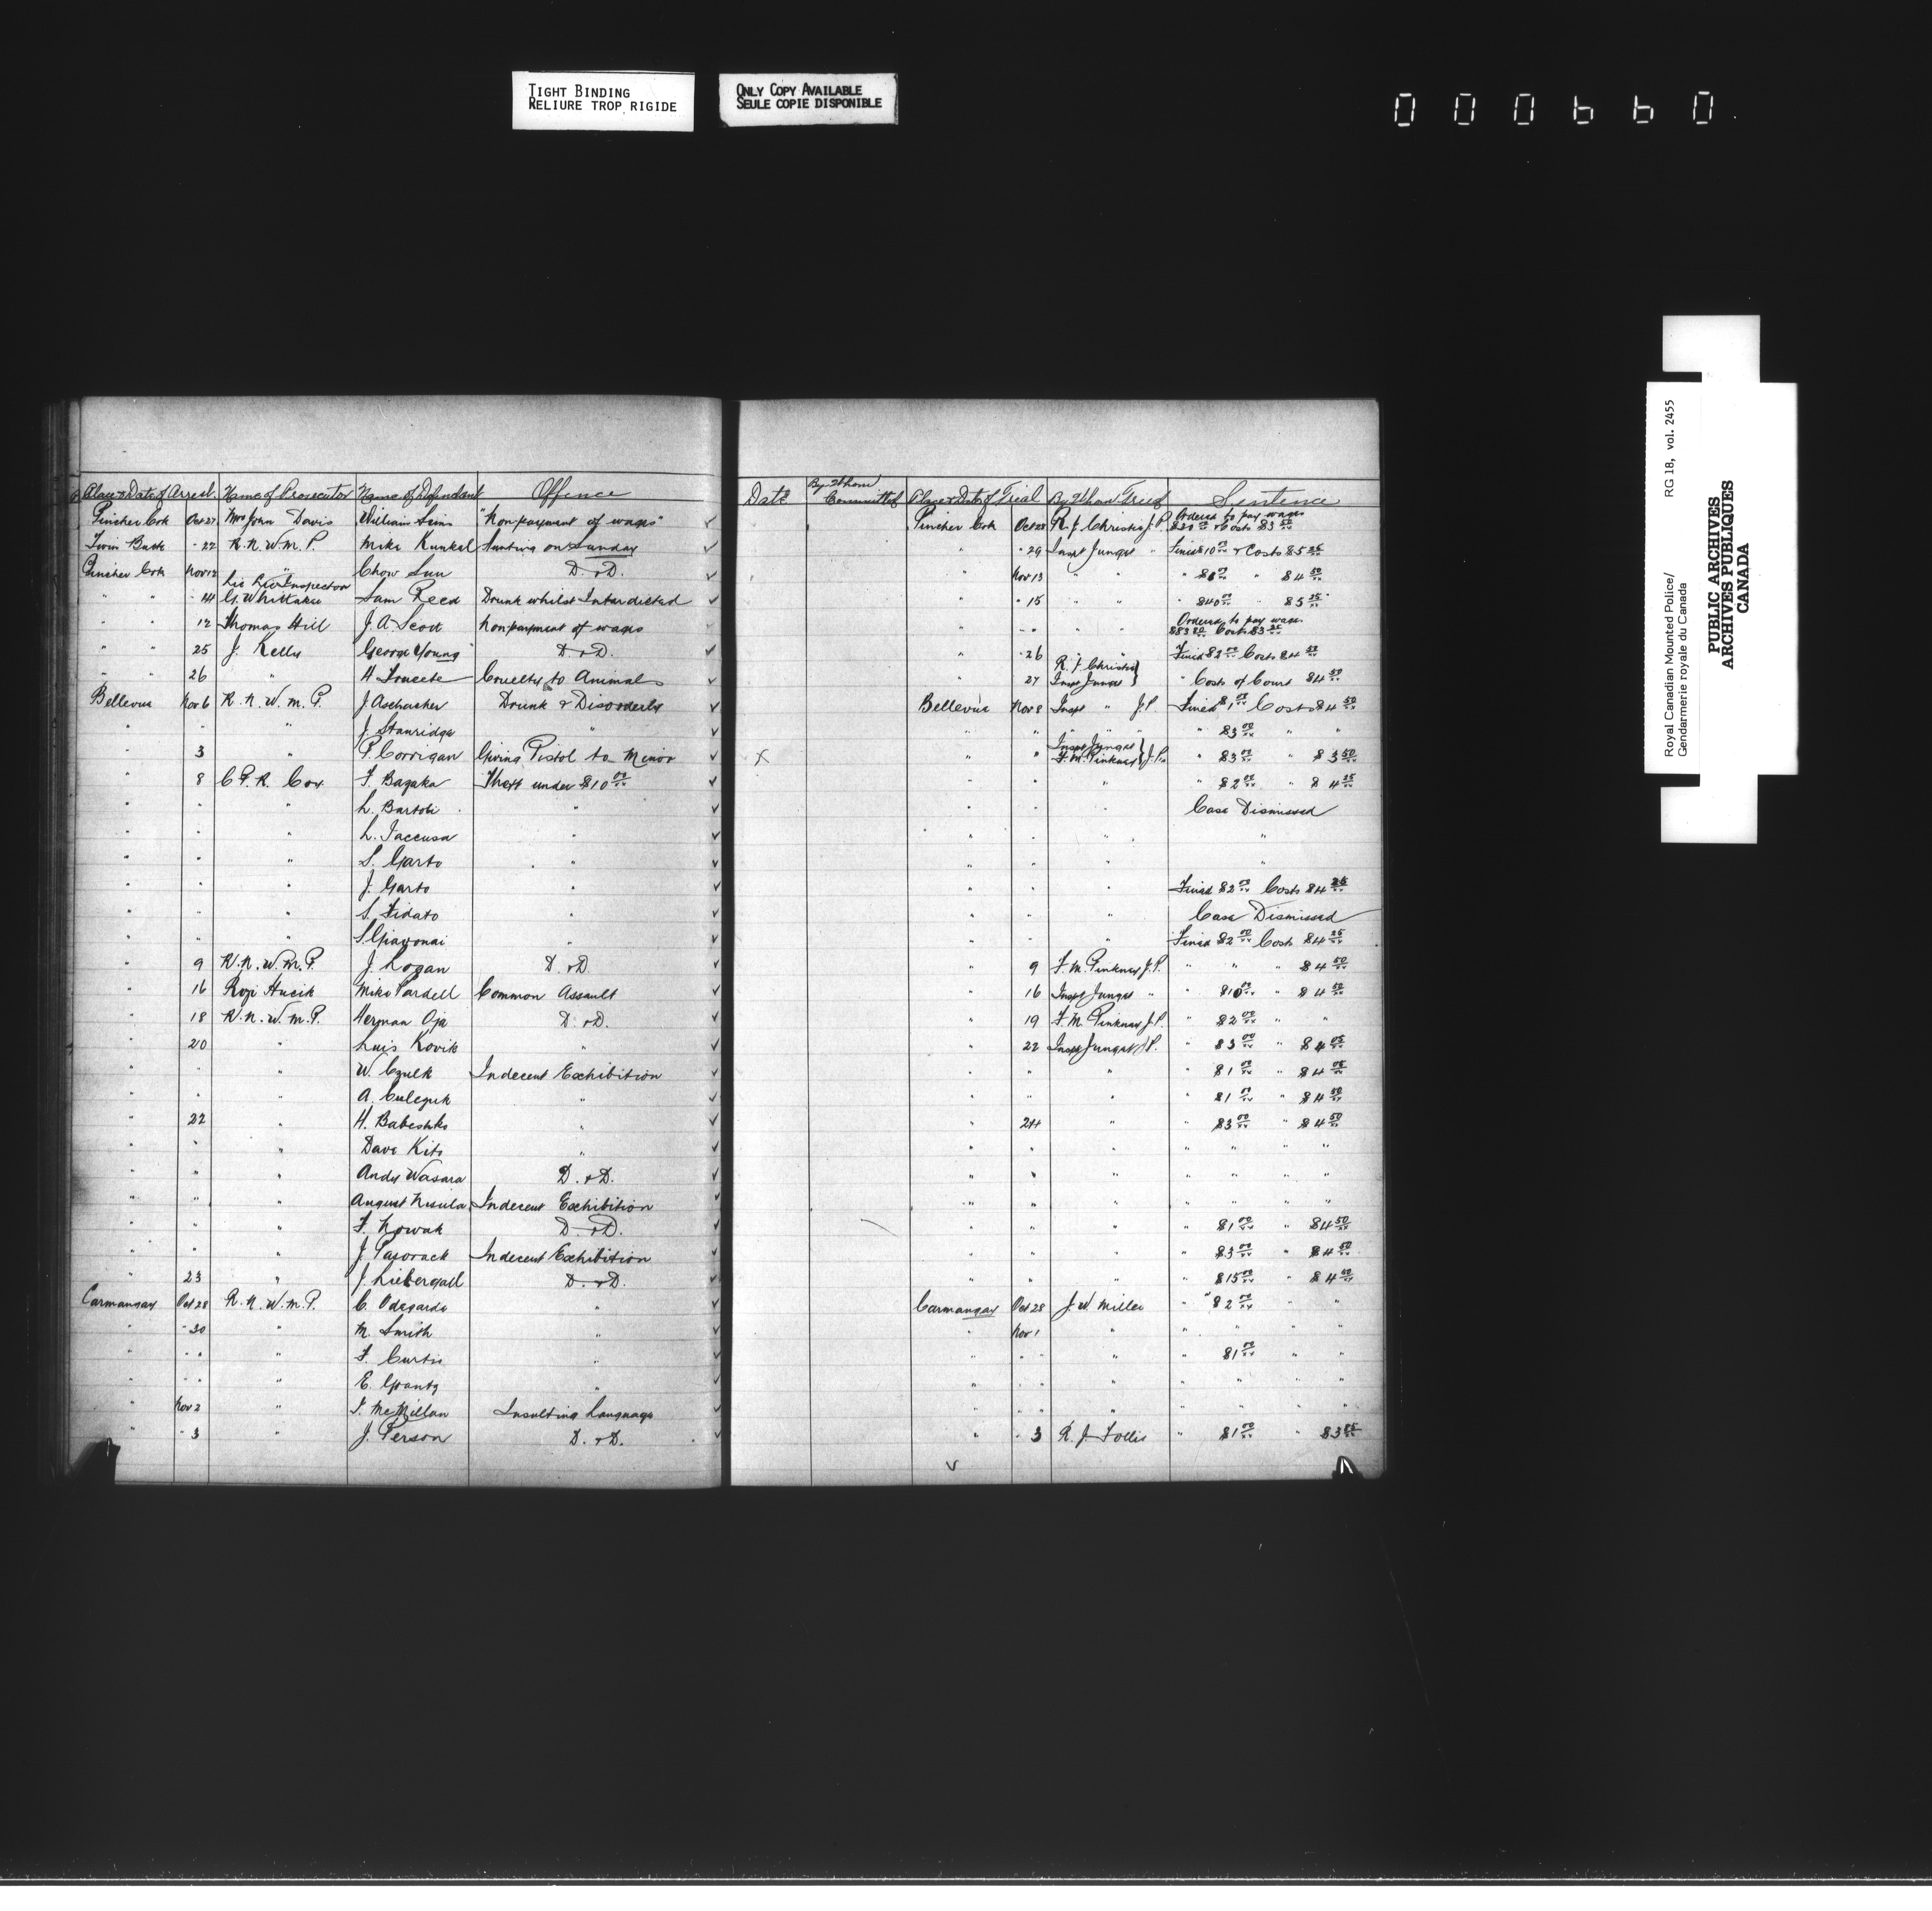 TIGHT BINDING
RELIURE TROP RIGIDE
ONLY COPY AVAILABLE
SEULE COPIE DISPONIBLE
000660
Royal Canadian Mounted Police/ RG 18, vol. 2455
Gendarmerie royale du Canada
PUBLIC ARCHIVES
ARCHIVES PUBLIQUES
CANADA
Place & Date of Arrest Name of Prosecutor Name of Defendant Offence Date By Whom Committed Place & Date of Trial By Whom Tried Sentence
Pincher Crk Oct 27 Mrs John Davis William "Non payment of wages" ✓ Pincher Crk Oct 28 R. J. Christie J.P. Ordered to pay wages $20 00 & Costs $3 50
Twin Butte " 22 R.N.W.M.P. Mike Kunkel Hunting on Sunday ✓ " " 29 Inspt Junget " Fined $10 00 & Costs $5 25
Pincher Crk Nov 12 " Chow Sun D. & D. ✓ Nov 13 " " " " $4 50
" " " 14 Lic Inspector G. Whittaker Sam Reed Drunk whilst Interdicted ✓ " " 15 " " " $40 00 "
" " 12 Thomas Hill J. A. Scott Non payment of wages ✓ " " " " " Ordered to pay wages Costs
" " 25 J. Kelly George Young D. & D. ✓ " " 26 " " Fined $2 00 Costs $4 50
" " 26 " H. Cruelty to Animals ✓ " 27 R. J. Christie } Inspt Junget } " Costs of Court $4 50
Bellevue Nov 6 R.N.W.M.P. J. Aschacher Drunk & Disorderly ✓ Bellevue Nov 8 Inspt " J.P. Fined $1 00 Costs $4 50
" " " J. Stanridge " ✓ " " " " " $3 00 " "
" 3 " P. Corrigan Giving Pistol to Minor ✓ X " Inspt Junget } F. M. Pinkney } J.Ps " $3 00 " $3 50
" 8 C.P.R. Cox F. Bazaka Theft under $10 00 ✓ " " " " $2 00 " $4 25
" " " L. Bartoli " ✓ " " " Case Dismissed
" " " L. Iaccusa " ✓ " " " "
" " " S. Garto " ✓ " " " "
" " " J. Garto " ✓ " " " Fined $2 00 Costs $4 25
" " " S. Fidato " ✓ " " " Case Dismissed
" " " S. " ✓ " " " Fined $2 00 Costs $4 25
" 9 R.N.W.M.P. J. Logan D. & D. ✓ " 9 F. M. Pinkney J.P. " " " $4 50
" 16 Rozi Hucik Mike Pardell Common Assault ✓ " 16 Inspt Junget " " $10 00 " $4 50
" 18 R.N.W.M.P. Herman Oja D. & D. ✓ " 19 F. M. Pinkney J.P. " $2 00 " "
" 20 " Luis Kovik " ✓ " 22 Inspt Junget J.P. " $3 00 " $4 05
" " " W. Czulk Indecent Exhibition ✓ " " " " $1 00 " $4 05
" " " A. Culezuk " ✓ " " " " $1 00 " $4 50
" 22 " H. Babeshko " ✓ " 24 " " $3 00 " $4 50
" " " Dave Kito " ✓ " " " " " " "
" " " Andy Wasara D. & D. ✓ " " " " " " "
" " " August Indecent Exhibition ✓ " " " " " " "
" " " F. Nowak D. & D. ✓ " " " " $1 00 " $4 50
" " " J. Pazorack Indecent Exhibition ✓ " " " " $3 00 " $4 50
" 23 " J. Liebergall D. & D. ✓ " " " " $15 00 " $4 50
Carmangay Oct 28 R.N.W.M.P. C. Odegarde " ✓ Carmangay Oct 28 J. W. Miller " $2 00 " "
" " 30 " M. Smith " ✓ " Nov 1 " " " " "
" " " " F. Curtis " ✓ " " " " " $1 00 " "
" " " " E. Grantz " ✓ " " " " " " " "
" Nov 2 " J. McMillan Insulting Language ✓ " " " " " " " "
" " 3 " J. Person D. & D. ✓ " " 3 R. J. Follis " $1 00 " $3 85